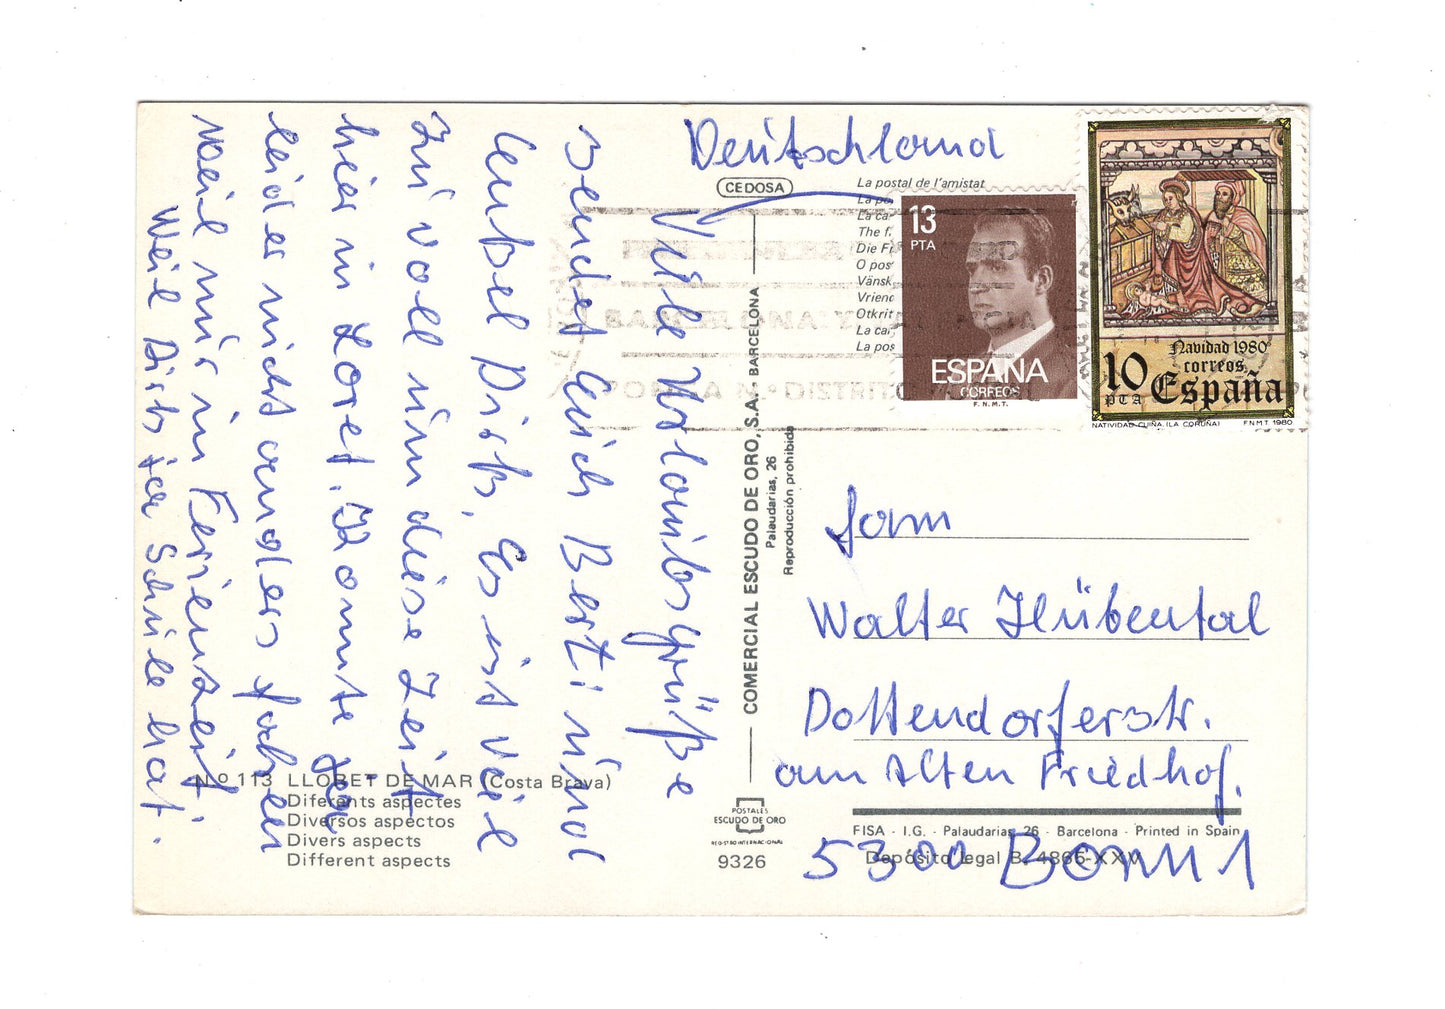 Viele Urlaubsgrüße
sendet Euch Berti und
Gerbel Dirk, Es ist viel
zu voll um diese Zeit
hier in Loret. Konnte ja
leider nicht anders fahren
weil nur in Ferienzeit.
Weil Dirk ja Schule hat.
Deutschland
CEDOSA
La postal de l'amistat
La po
La ca
The f.
Die Fr
O pos
Vänsk
Vriend
Otkrit
La car
La pos
13
PTA
ESPAÑA
CORREOS
F.N.M.T.
Navidad 1980
correos
10
PTA
España
NATIVIDAD CUIÑA, (LA CORUÑA)
F.N.M.T. 1980
COMERCIAL ESCUDO DE ORO, S.A. - BARCELONA
Palaudarias, 26
Reproducción prohibida
Fam
Walter Hübental
Dottendorferstr.
am Alten Friedhof.
5300 Bonn 1
Nº 113 LLORET DE MAR (Costa Brava)
Diferents aspectes
Diversos aspectos
Divers aspects
Different aspects
POSTALES
ESCUDO DE ORO
REGISTRO INTERNACIONAL
9326
FISA - I.G. - Palaudarias, 26 - Barcelona - Printed in Spain
Depósito legal B. 4866-XXV